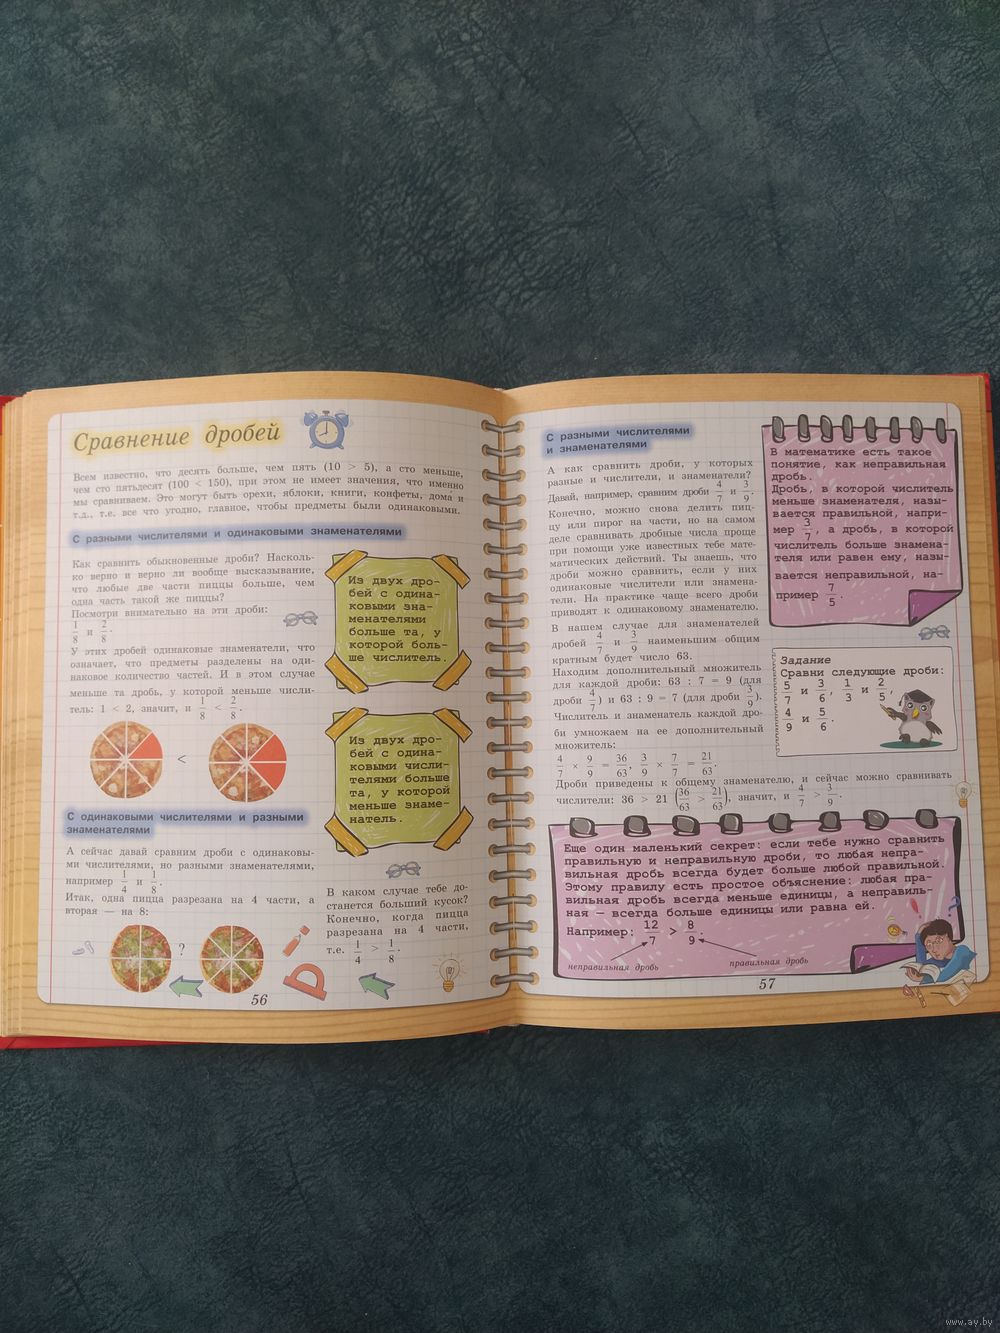 Сравнение дробей
Всем известно, что десять больше, чем пять (10 > 5), а сто меньше,
чем сто пятьдесят (100 < 150), при этом не имеет значения, что именно
мы сравниваем. Это могут быть орехи, яблоки, книги, конфеты, дома и
т.д., т.е. все что угодно, главное, чтобы предметы были одинаковыми.
С разными числителями и одинаковыми знаменателями
Как сравнить обыкновенные дроби? Насколь-
ко верно и верно ли вообще высказывание,
что любые две части пиццы больше, чем
одна часть такой же пиццы?
Посмотри внимательно на эти дроби:
1/8 и 2/8.
У этих дробей одинаковые знаменатели, что
означает, что предметы разделены на оди-
наковое количество частей. И в этом случае
меньше та дробь, у которой меньше числи-
тель: 1 < 2, значит, и 1/8 < 2/8.
<
Из двух дро-
бей с одина-
ковыми зна-
менателями
больше та, у
которой боль-
ше числитель.
Из двух дро-
бей с одина-
ковыми числи-
телями больше
та, у которой
меньше знаме-
натель.
С одинаковыми числителями и разными
знаменателями
А сейчас давай сравним дроби с одинаковы-
ми числителями, но разными знаменателями,
например 1/4 и 1/8.
Итак, одна пицца разрезана на 4 части, а
вторая — на 8:
?
В каком случае тебе до-
станется больший кусок?
Конечно, когда пицца
разрезана на 4 части,
т.е. 1/4 > 1/8.
56
С разными числителями
и знаменателями
А как сравнить дроби, у которых
разные и числители, и знаменатели?
Давай, например, сравним дроби 4/7 и 3/9.
Конечно, можно снова делить пиц-
цу или пирог на части, но на самом
деле сравнивать дробные числа проще
при помощи уже известных тебе мате-
матических действий. Ты знаешь, что
дроби можно сравнить, если у них
одинаковые числители или знамена-
тели. На практике чаще всего дроби
приводят к одинаковому знаменателю.
В нашем случае для знаменателей
дробей 4/7 и 3/9 наименьшим общим
кратным будет число 63.
Находим дополнительный множитель
для каждой дроби: 63 : 7 = 9 (для
дроби 4/7) и 63 : 9 = 7 (для дроби 3/9).
Числитель и знаменатель каждой дро-
би умножаем на ее дополнительный
множитель:
4/7 × 9/9 = 36/63, 3/9 × 7/7 = 21/63.
Дроби приведены к общему знаменателю, и сейчас можно сравнивать
числители: 36 > 21 (36/63 > 21/63), значит, и 4/7 > 3/9.
В математике есть такое
понятие, как неправильная
дробь.
Дробь, в которой числитель
меньше знаменателя, назы-
вается правильной, напри-
мер 3/7, а дробь, в которой
числитель больше знамена-
теля или равен ему, назы-
вается неправильной, на-
пример 7/5.
Задание
Сравни следующие дроби:
5/7 и 3/6, 1/3 и 2/5,
4/9 и 5/6.
Еще один маленький секрет: если тебе нужно сравнить
правильную и неправильную дроби, то любая непра-
вильная дробь всегда будет больше любой правильной.
Этому правилу есть простое объяснение: любая пра-
вильная дробь всегда меньше единицы, а неправиль-
ная — всегда больше единицы или равна ей.
Например: 12/7 > 8/9.
неправильная дробь
правильная дробь
57
www.ay.by